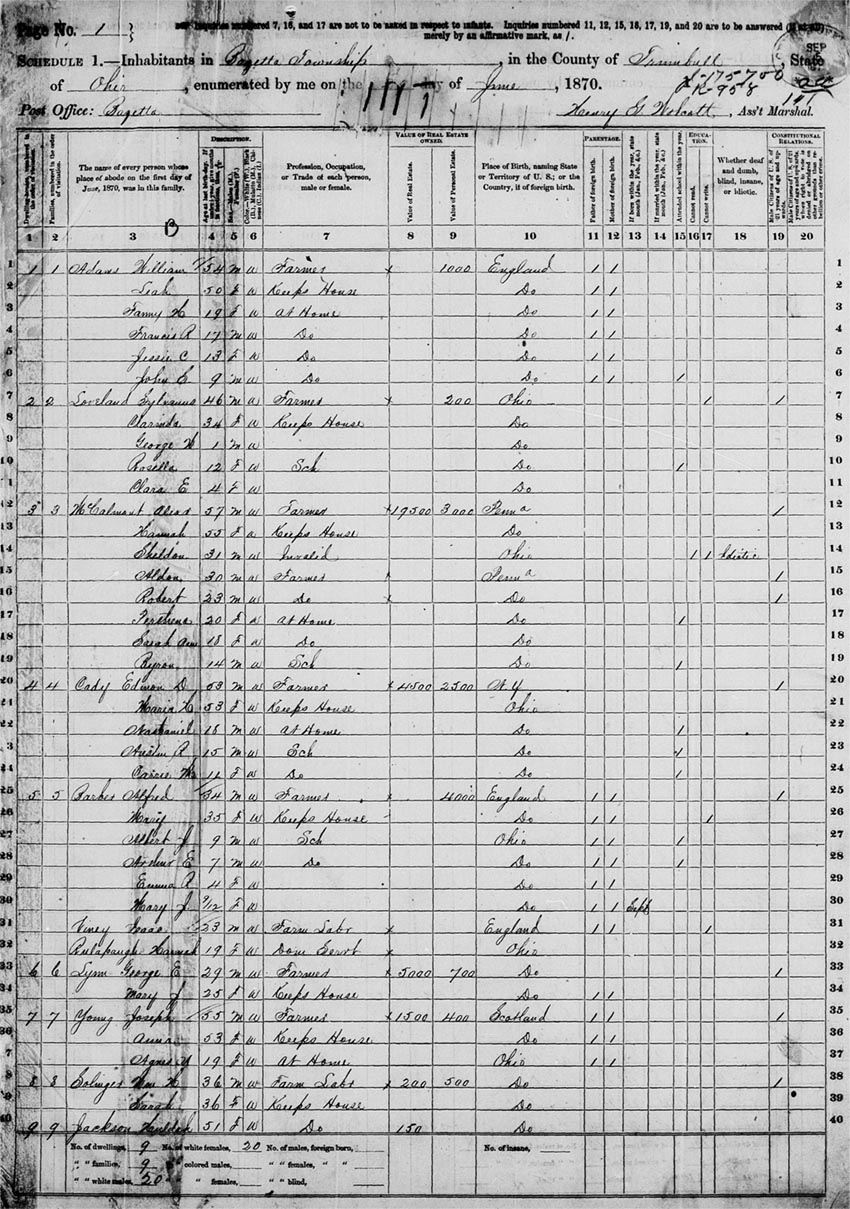 Page No. 1
Inquiries numbered 7, 16, and 17 are not to be asked in respect to infants. Inquiries numbered 11, 12, 15, 16, 17, 19, and 20 are to be answered (if at all)
merely by an affirmative mark, as /.
SCHEDULE 1.—Inhabitants in Bazetta Township, in the County of Trumbull, State
of Ohio, enumerated by me on the day of June, 1870.
Post Office: Bazetta
Henry G Wolcott, Ass't Marshal.
The name of every person whose place of abode on the first day of June, 1870, was in this family.
DESCRIPTION.
Profession, Occupation, or Trade of each person, male or female.
VALUE OF REAL ESTATE OWNED.
Value of Real Estate.
Value of Personal Estate.
Place of Birth, naming State or Territory of U. S.; or the Country, if of foreign birth.
PARENTAGE.
Father of foreign birth.
Mother of foreign birth.
Attended school within the year.
EDUCATION.
Cannot read.
Cannot write.
Whether deaf and dumb, blind, insane, or idiotic.
CONSTITUTIONAL RELATIONS.
1 2 3 4 5 6 7 8 9 10 11 12 13 14 15 16 17 18 19 20
1 1 1 Adams William 54 m w Farmer 1000 England / / 1
2 Leah 50 F w Keeps House Do / / 2
3 Fanny 19 F w At Home Do / / 3
4 Francis R 17 m w Do Do / / 4
5 Jessie C 13 F w Do Do / / 5
6 John E 9 m w Do Do / / / 6
7 2 2 Loveland Sylvanus 46 m w Farmer 200 Ohio / / 7
8 Clarinda 34 F w Keeps House Do 8
9 George W 1 m w Do 9
10 Rosella 12 F w Sch Do / 10
11 Clara E 4 F w Do 11
12 3 3 McCalmont 57 m w Farmer 19500 3000 Penna / 12
13 Hannah 55 F w Keeps House Do 13
14 Sheldon 31 m w Invalid Ohio / / Idiotic 14
15 Aldon 30 m w Farmer Penna / 15
16 Robert 23 m w Do Do / 16
17 20 F w At Home Do / 17
18 Sarah Ann 18 F w Do Do 18
19 Byron 14 m w Sch Do / 19
20 4 4 Cady Edmon D 53 m w Farmer 4500 2500 N.Y / 20
21 Maria 53 F w Keeps House Ohio 21
22 Nathaniel 18 m w At Home Do / 22
23 Austin R 15 m w Sch Do / 23
24 11 F w Do Do / 24
25 5 5 Barber Alfred 34 m w Farmer 4000 England / / / 25
26 Mary 35 F w Keeps House Do / / / 26
27 Albert J 9 m w Sch Ohio / / / 27
28 Arthur E 7 m w Do Do / / / 28
29 Emma R 4 F w Do / / 29
30 Mary J 9/12 F w Do / / Sept 30
31 Viney Isaac 23 m w Farm Labr England / / / 31
32 Hannah 19 F w Dom Servt Ohio 32
33 6 6 Lynn George E 29 m w Farmer 5000 700 Do / 33
34 Mary J 25 F w Keeps House Do / / 34
35 7 7 Young Joseph 55 m w Farmer 1500 400 Scotland / / / 35
36 Anna 53 F w Keeps House Do / / 36
37 Agnes 19 F w At Home Ohio / / 37
38 8 8 Solinger Wm H 36 m w Farm Labr 200 500 Do / 38
39 Sarah 36 F w Keeps House Do 39
40 9 9 Jackson Huldah 51 F w Do 150 Do 40
No. of dwellings, 9 No. of white females, 20 No. of males, foreign born, No. of insane,
" " families, 9 " " colored males, " " females, " "
" " white males, 20 " " " females, " " blind,